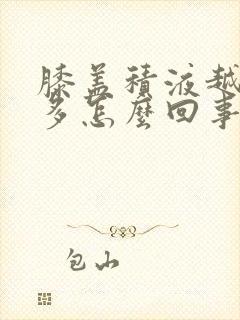 膝盖積液越
多怎麼回事
包山